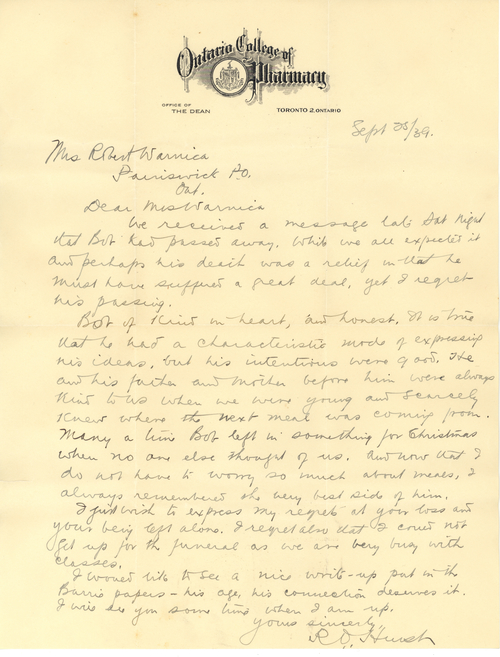 Ontario College of
Pharmacy
OFFICE OF
THE DEAN
TORONTO 2, ONTARIO
Sept 25/39.
Mrs Robert Warnica
Painswick P.O.
Ont.
Dear Mrs Warnica
We received a message late Sat Night
that Bob had passed away. While we all expected it
and perhaps his death was a relief in that he
must have suffered a great deal, yet I regret
his passing.
Bob of Kind in heart, and honest. It is true
that he had a characteristic mode of expressing
his ideas, but his intentions were good. He
and his father and mother before him were always
Kind to us when we were young and scarcely
Knew where the next meal was coming from.
Many a time Bob left in something for Christmas
when no one else thought of us. And now that I
do not have to worry so much about meals, I
always remembered the very best side of him.
I just wish to express my regrets at your loss and
your being left alone. I regret also that I could not
get up for the funeral as we are very busy with
classes.
I would like to see a nice write-up put in the
Barrie papers - his age, his connection deserves it.
I will see you some time when I am up.
Yours sincerely
R.O. Hurst